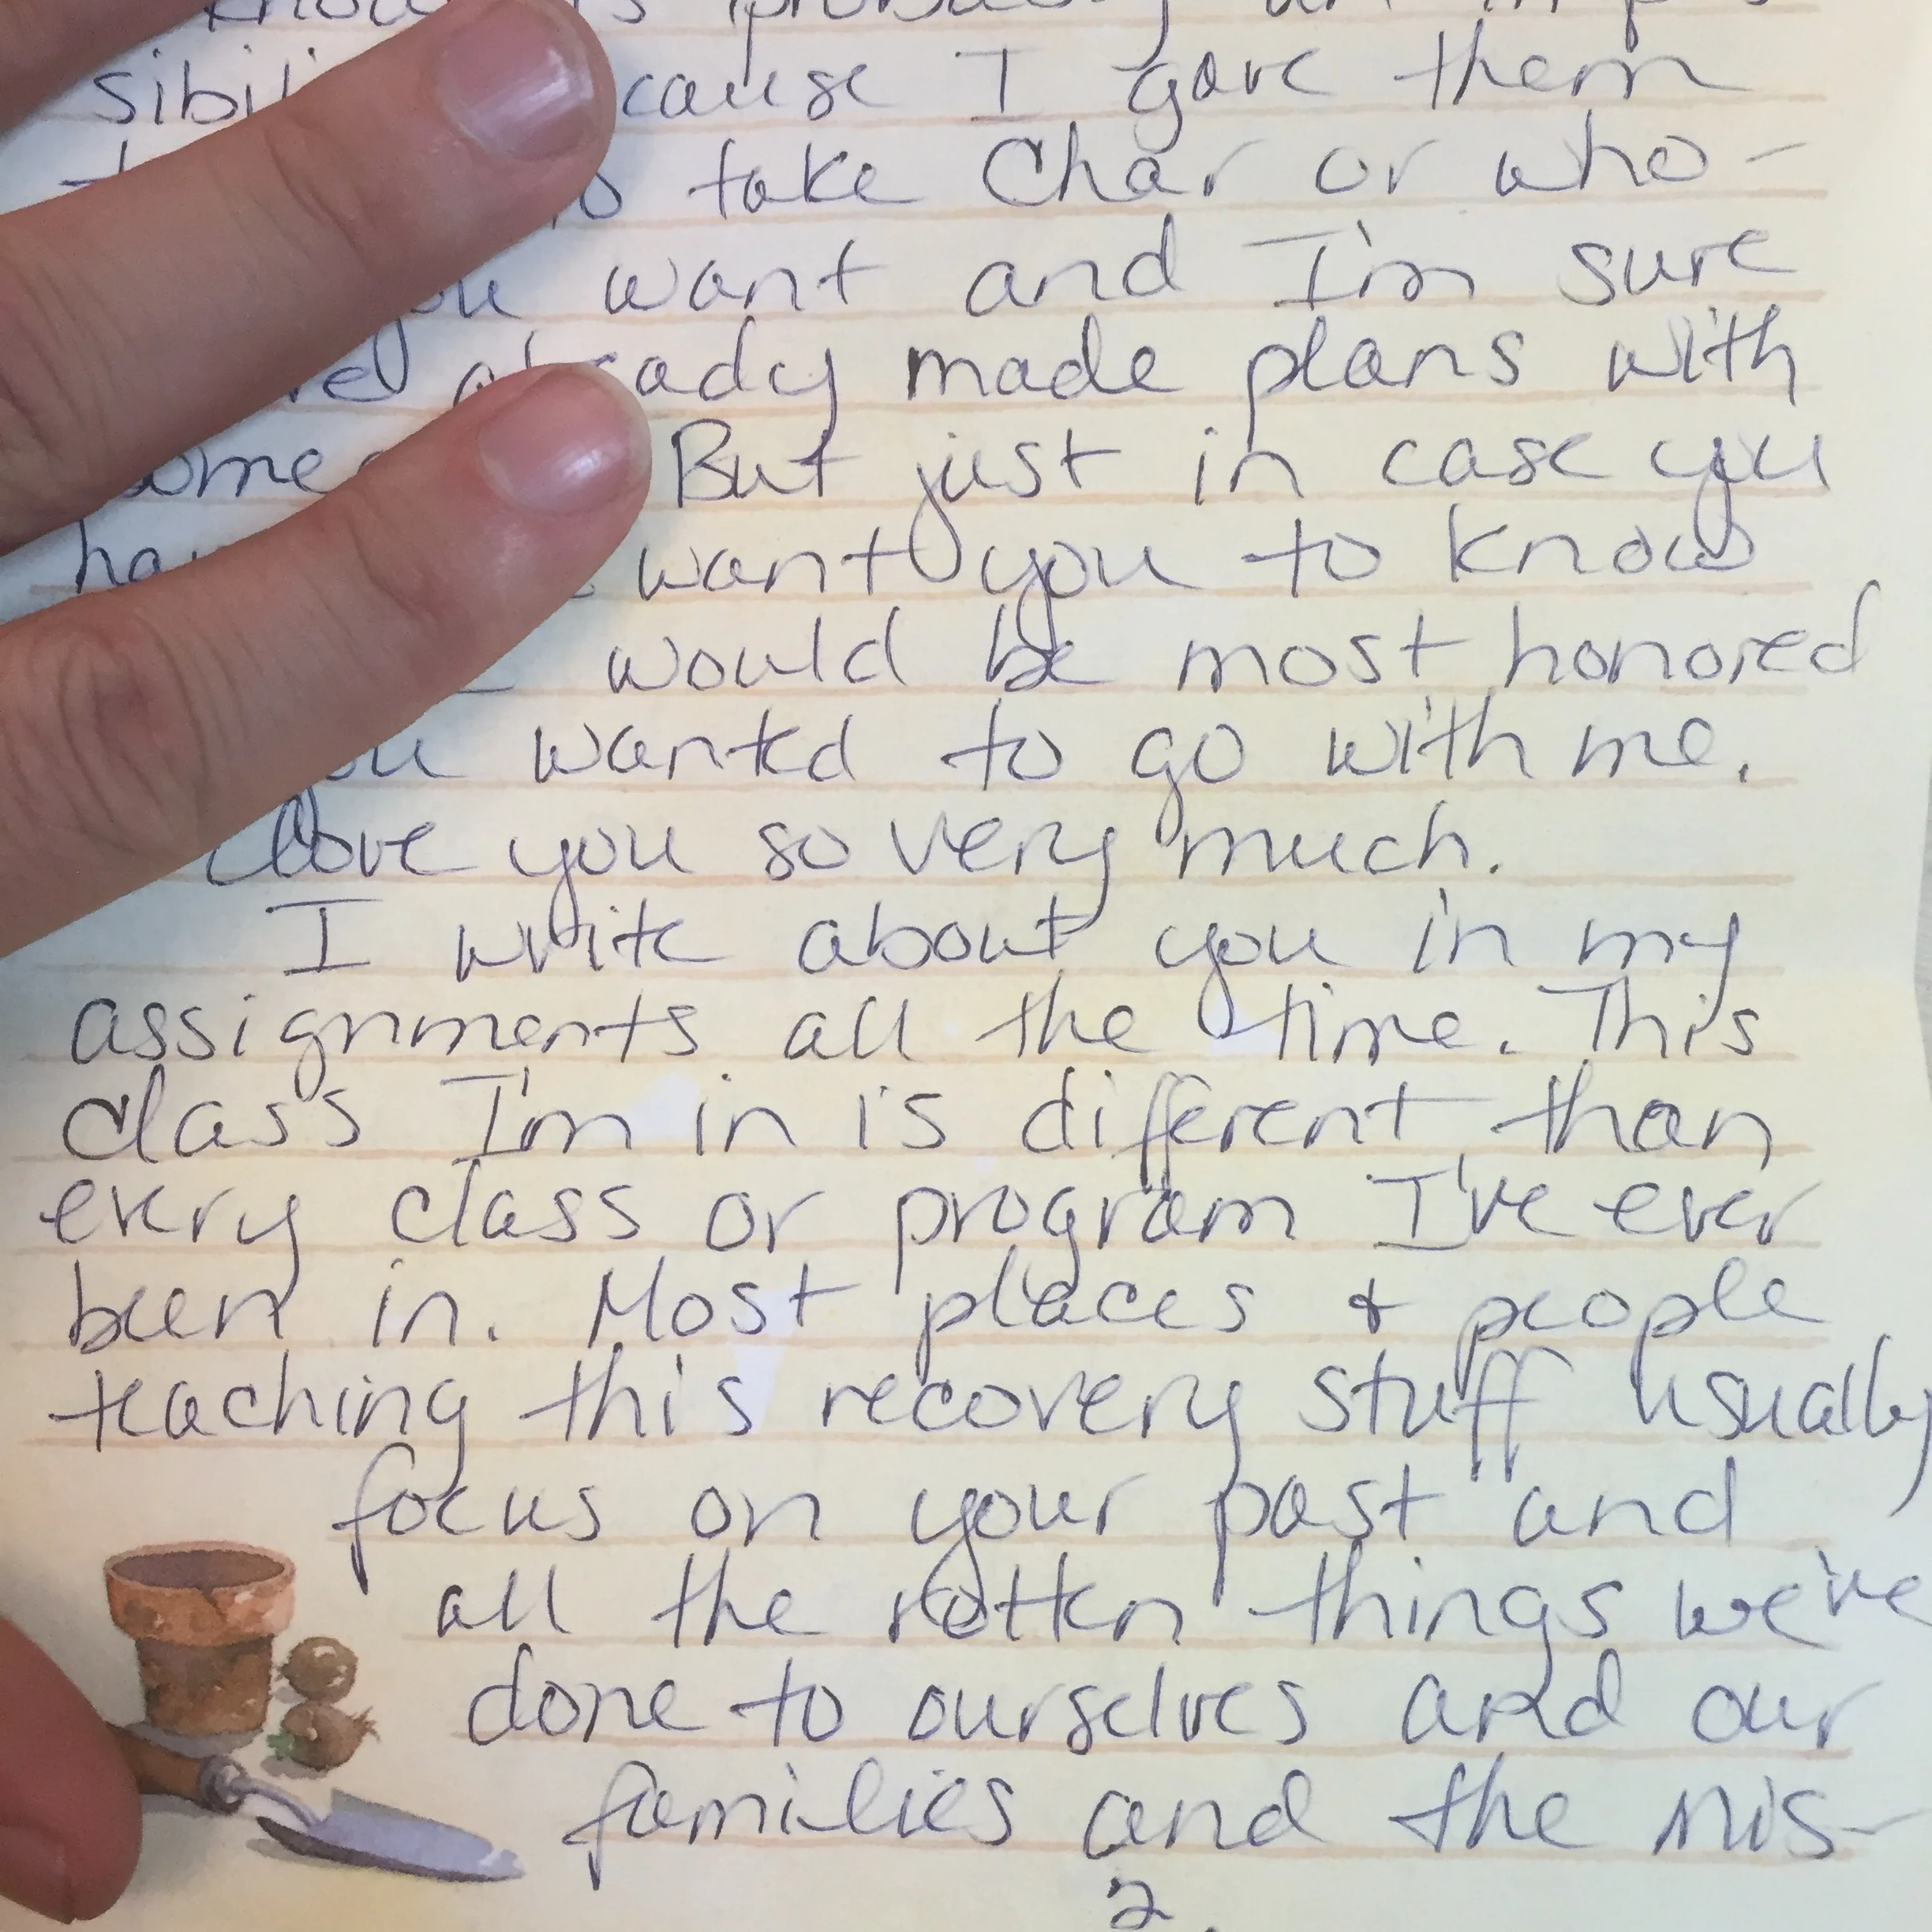 sibili cause I gave them
take Char or who-
want and I'm sure
already made plans with
But just in case you
want you to know
would be most honored
wanted to go with me.
love you so very much.
I write about you in my
assignments all the time. This
class I'm in is different than
every class or program I've ever
been in. Most places + people
teaching this recovery stuff usually
focus on your past and
all the rotten things we've
done to ourselves and our
families and the mis-
2.